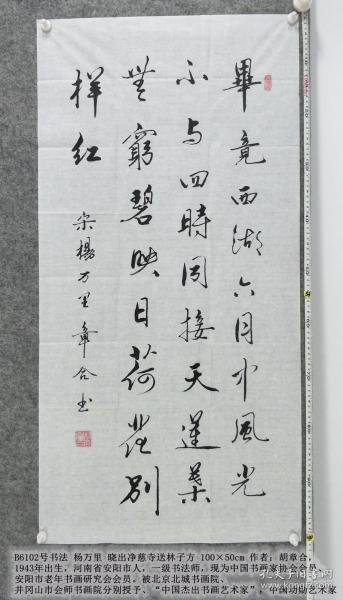 畢竟西湖六月中風光
不与四時同接天蓮葉
無窮碧映日荷花别
样红
宋楊万里章合书
B6102号书法 杨万里 晓出净慈寺送林子方 100×50cm 作者：胡章合，
1943年出生，河南省安阳市人，一级书法师，现为中国书画家协会会员，
安阳市老年书画研究会会员，被北京北城书画院、
井冈山市会师书画院分别授予、“中国杰出书画艺术家”，中国功勋艺术家